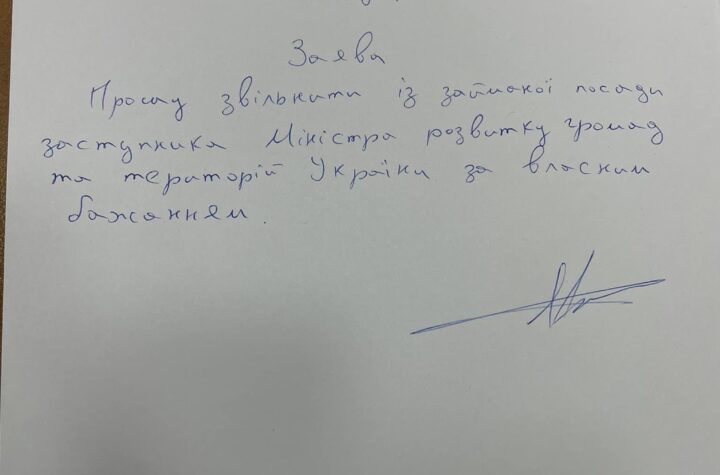 Заява
Прошу звільнити із займаної посади
заступника Міністра розвитку громад
та територій України за власним
бажанням.